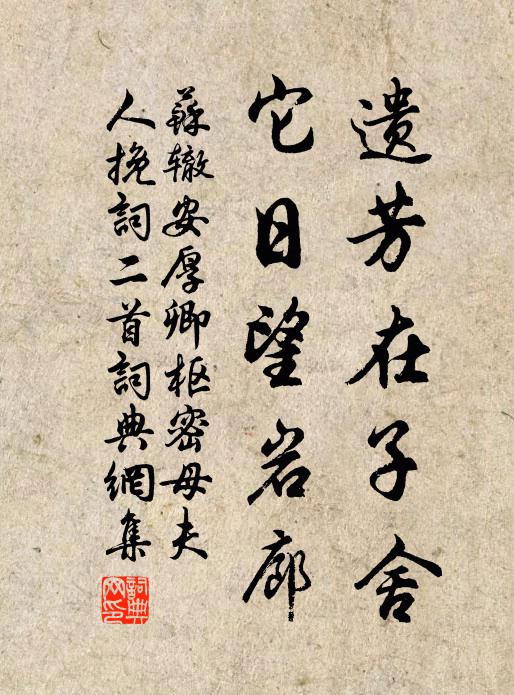 遗芳在子舍
它日望岩廊
蘇辙安厚卿枢密母夫
人挽詞二首詞典網集
詞典
网印